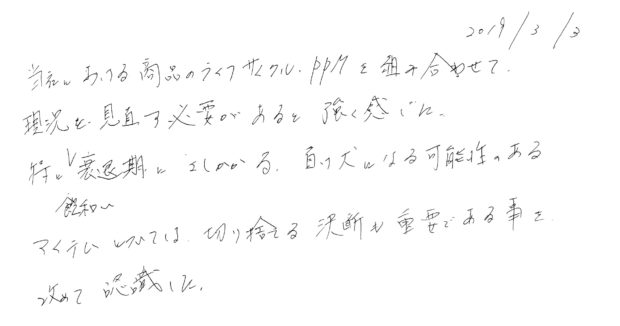 2019/3/3
当社における商品のライフサイクル、PPMを組み合わせて、
現況を見直す必要があると強く感じた。
特に衰退期にさしかかる、負け犬になる可能性のある
飽和〜
アイテムについては、切り捨てる決断も重要である事を
改めて認識した。